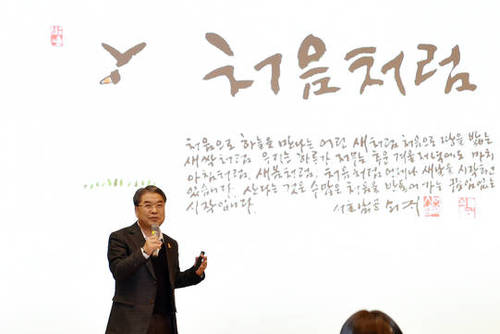 처음처럼
처음으로 하늘을 만나는 어린 새처럼 처음으로 땅을 밟는
새싹처럼. 우리는 하루가 저무는 추운 겨울저녁에도 마치
아침처럼, 새봄처럼, 처음처럼 언제나 새날을 시작하고
있습니다. 산다는 것은 수많은 처음을 만들어가는 끊임없는
시작입니다.